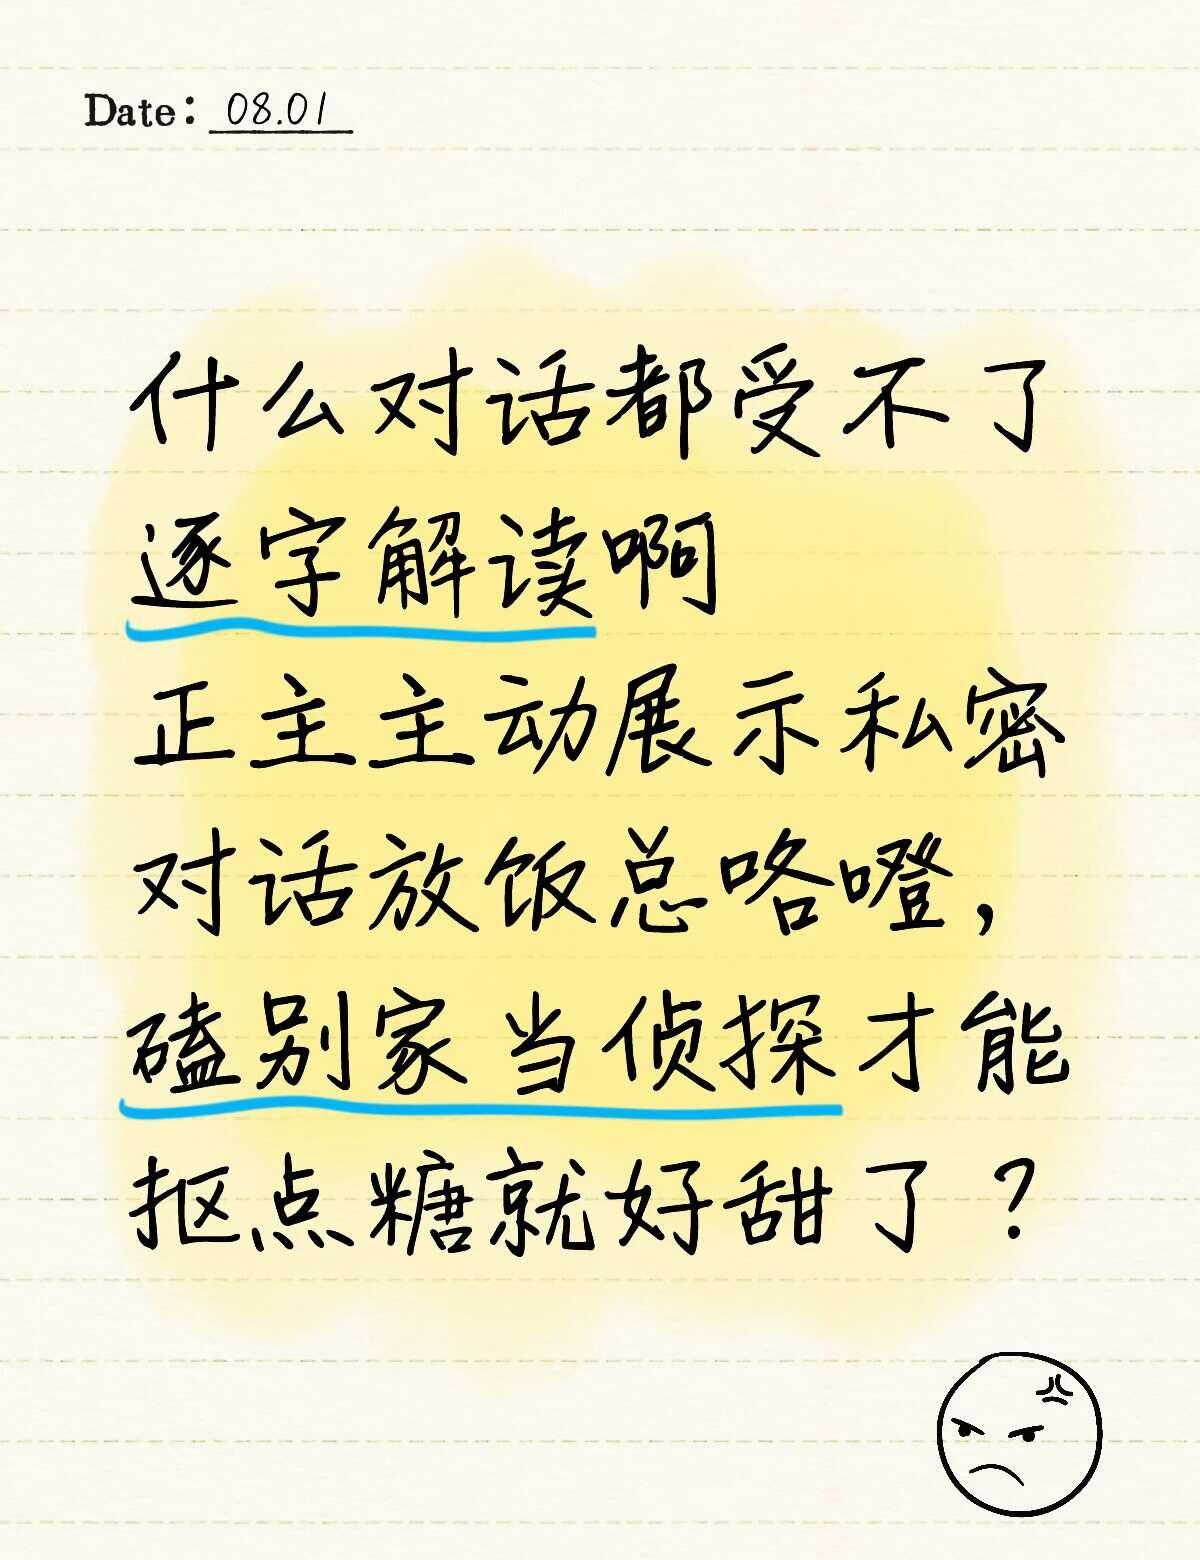 Date: 08.01
什么对话都受不了
逐字解读啊
正主主动展示私密
对话放饭总咯噔，
磕别家当侦探才能
抠点糖就好甜了？